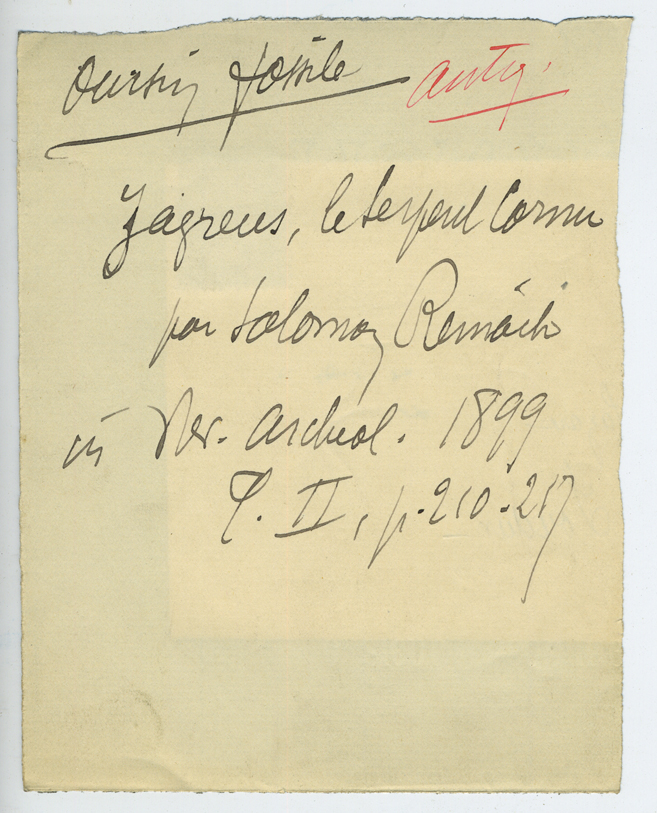 Oursin fossile antiq.
Zagreus, le serpent Cornu
par Salomon Reinach
in Rev. Archeol. 1899
T. II, p. 210-217